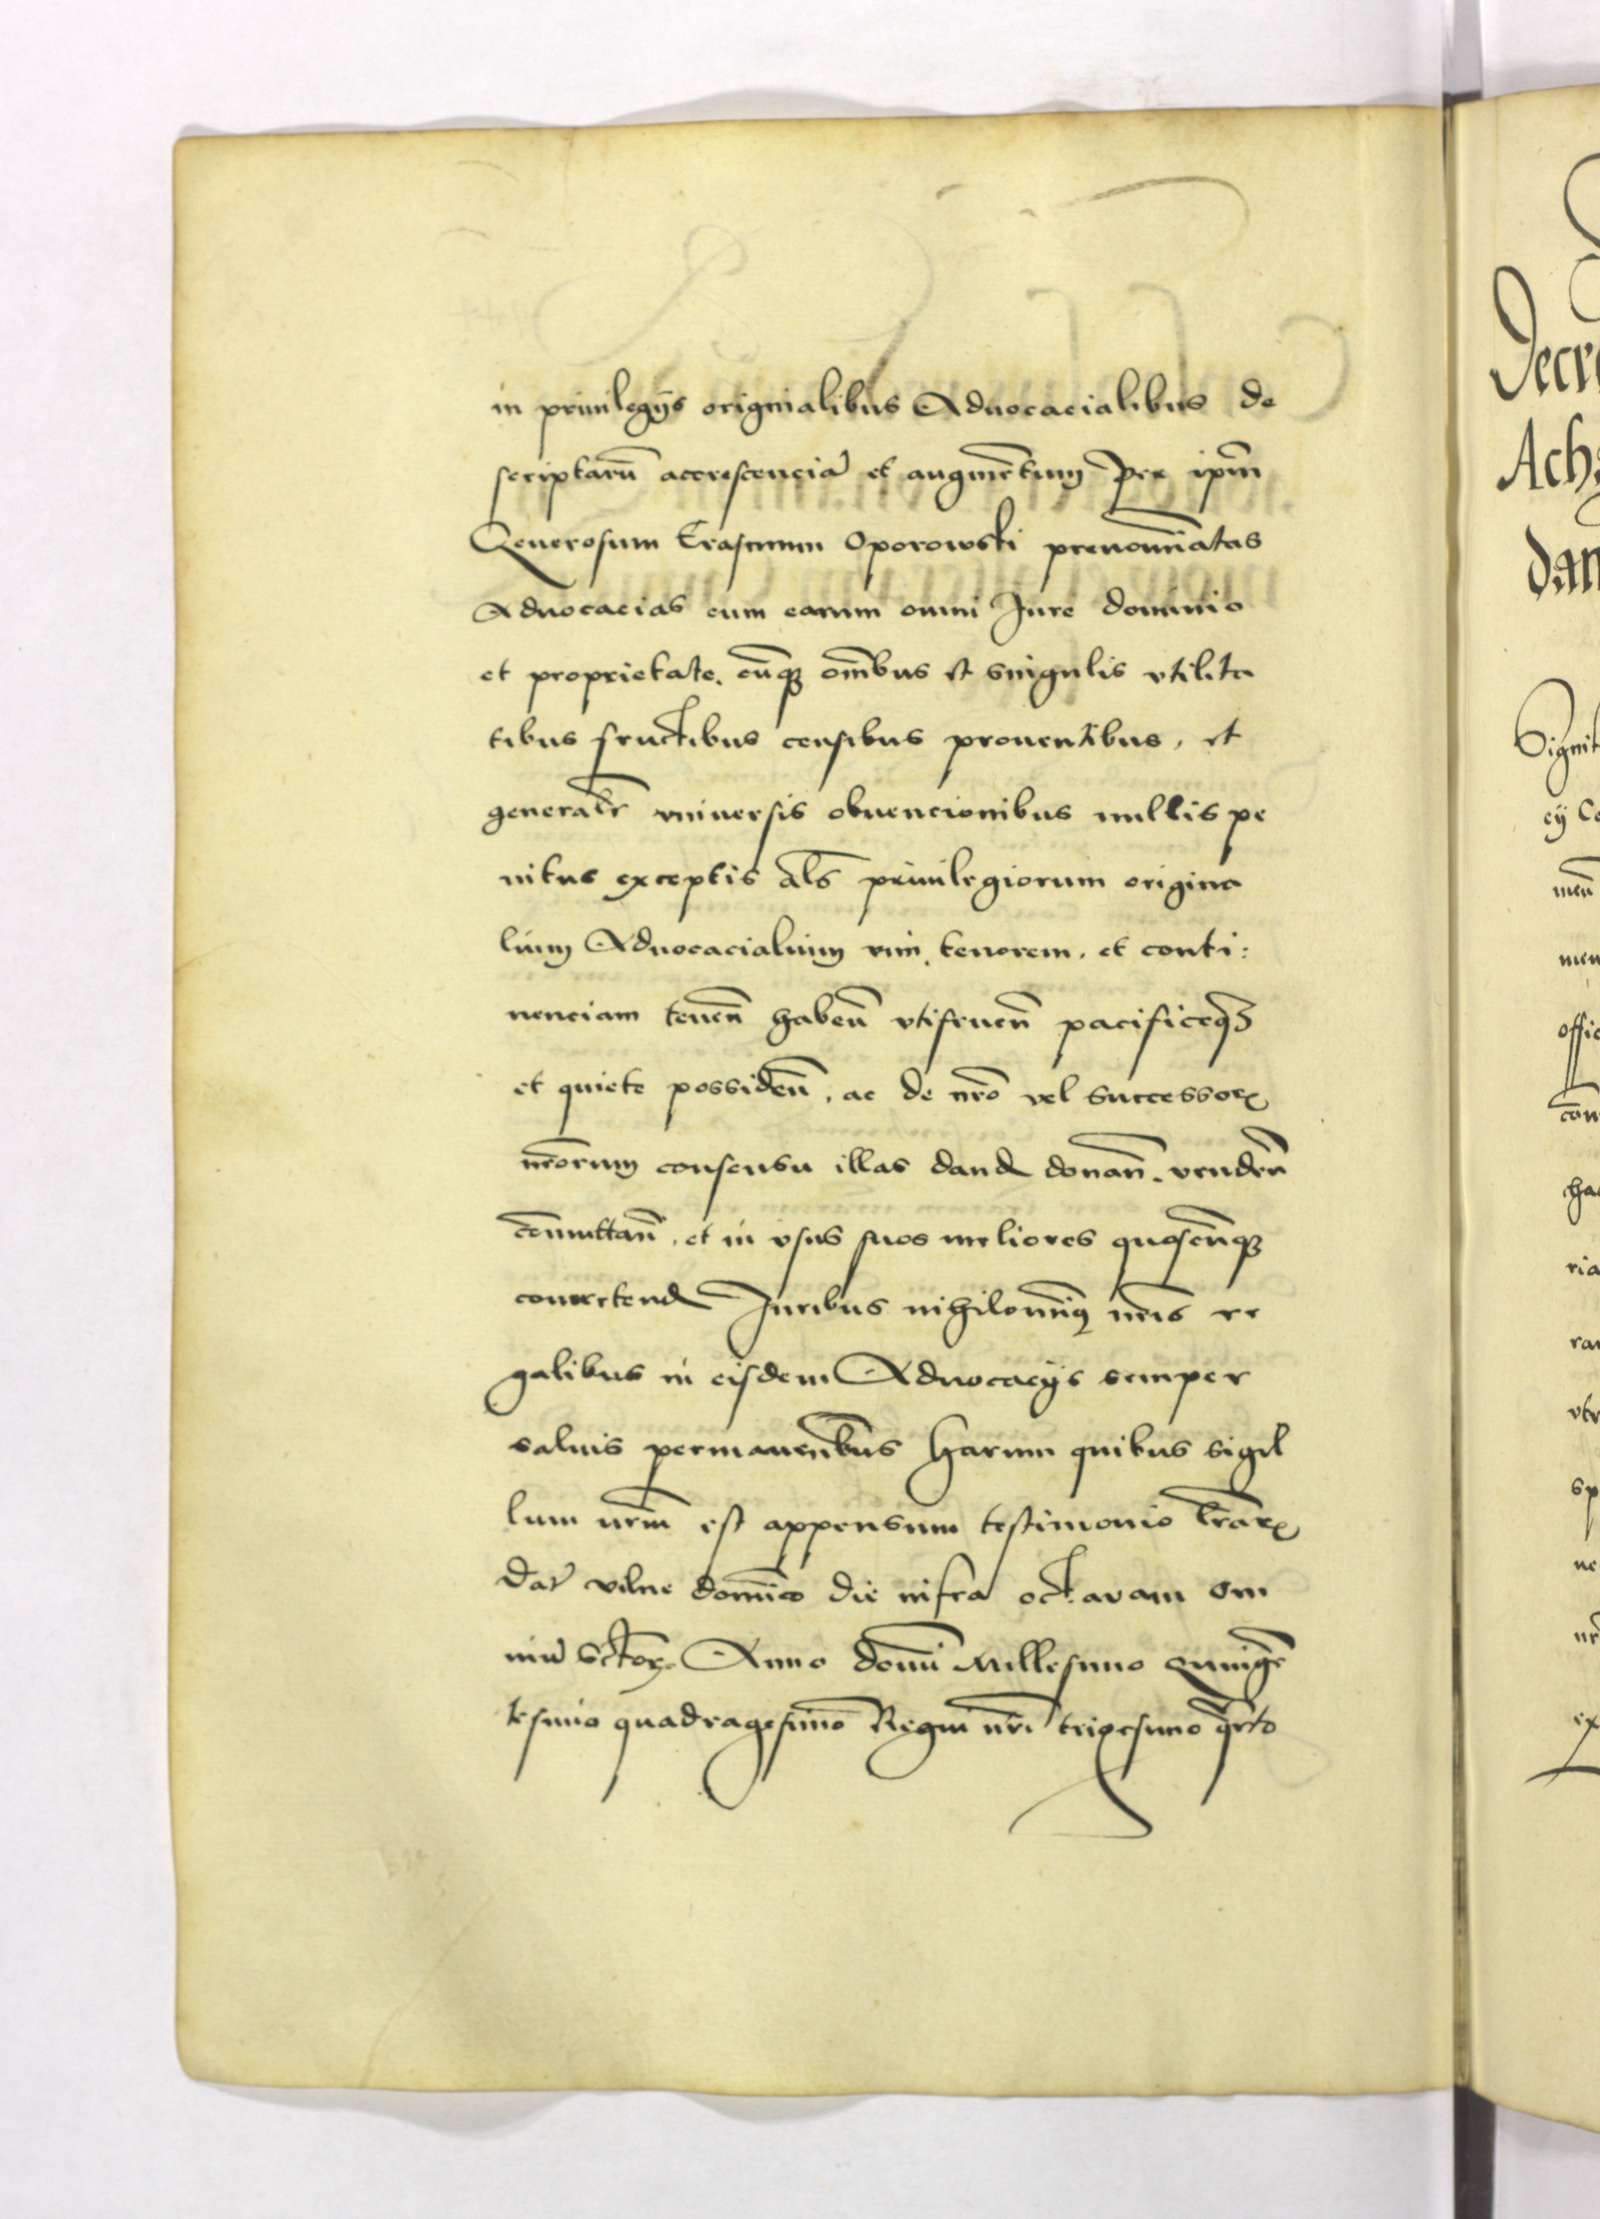 in priuilegijs originalibus Aduocacialibus de
scriptarū accrescenciā et augmētum Per ipm̄
Generosum Erasmum Oporowski prenomīatas
Aduocacias cum earum omni Iure dominio
et proprietate. cūqꝫ om̄ibus et singulis vtilita
tibus fructibus censibus prouentibus, et
generalr̄ vniuersis obuencionibus nullis pe
nitus exceptis als̄ priuilegiorum origina
lium Aduocacialium vim, tenorem, et conti:
nenciam tenen̄ haben̄ vtifruen̄ pacificeqꝫ
et quiete possiden̄, ac de nr̄o vel successorꝝ
nr̄orum consensu illas dand donan̄. venden̄
com̄uttan̄, et in vsus suos meliores quoscūqꝫ
conuertend Iuribus nihilomīꝰ nr̄is re
galibus in eisdem Aduocacijs semper
saluis permanen̄bus Harum quibus sigil
lum nr̄m est appensum testimonio lr̄arꝝ
Dat̄ vilne domīco die infra octauam om
niū sctorꝝ. Anno domī Millesimo Quīngē
tesimo quadragesimo Regni nr̄i trigesimo qrto
Decr
Ach
dan
Dignit
eij Co
men̄
men
offic
con̄
ha
ria
ra
vtr
sp
ne
nr̄
ex